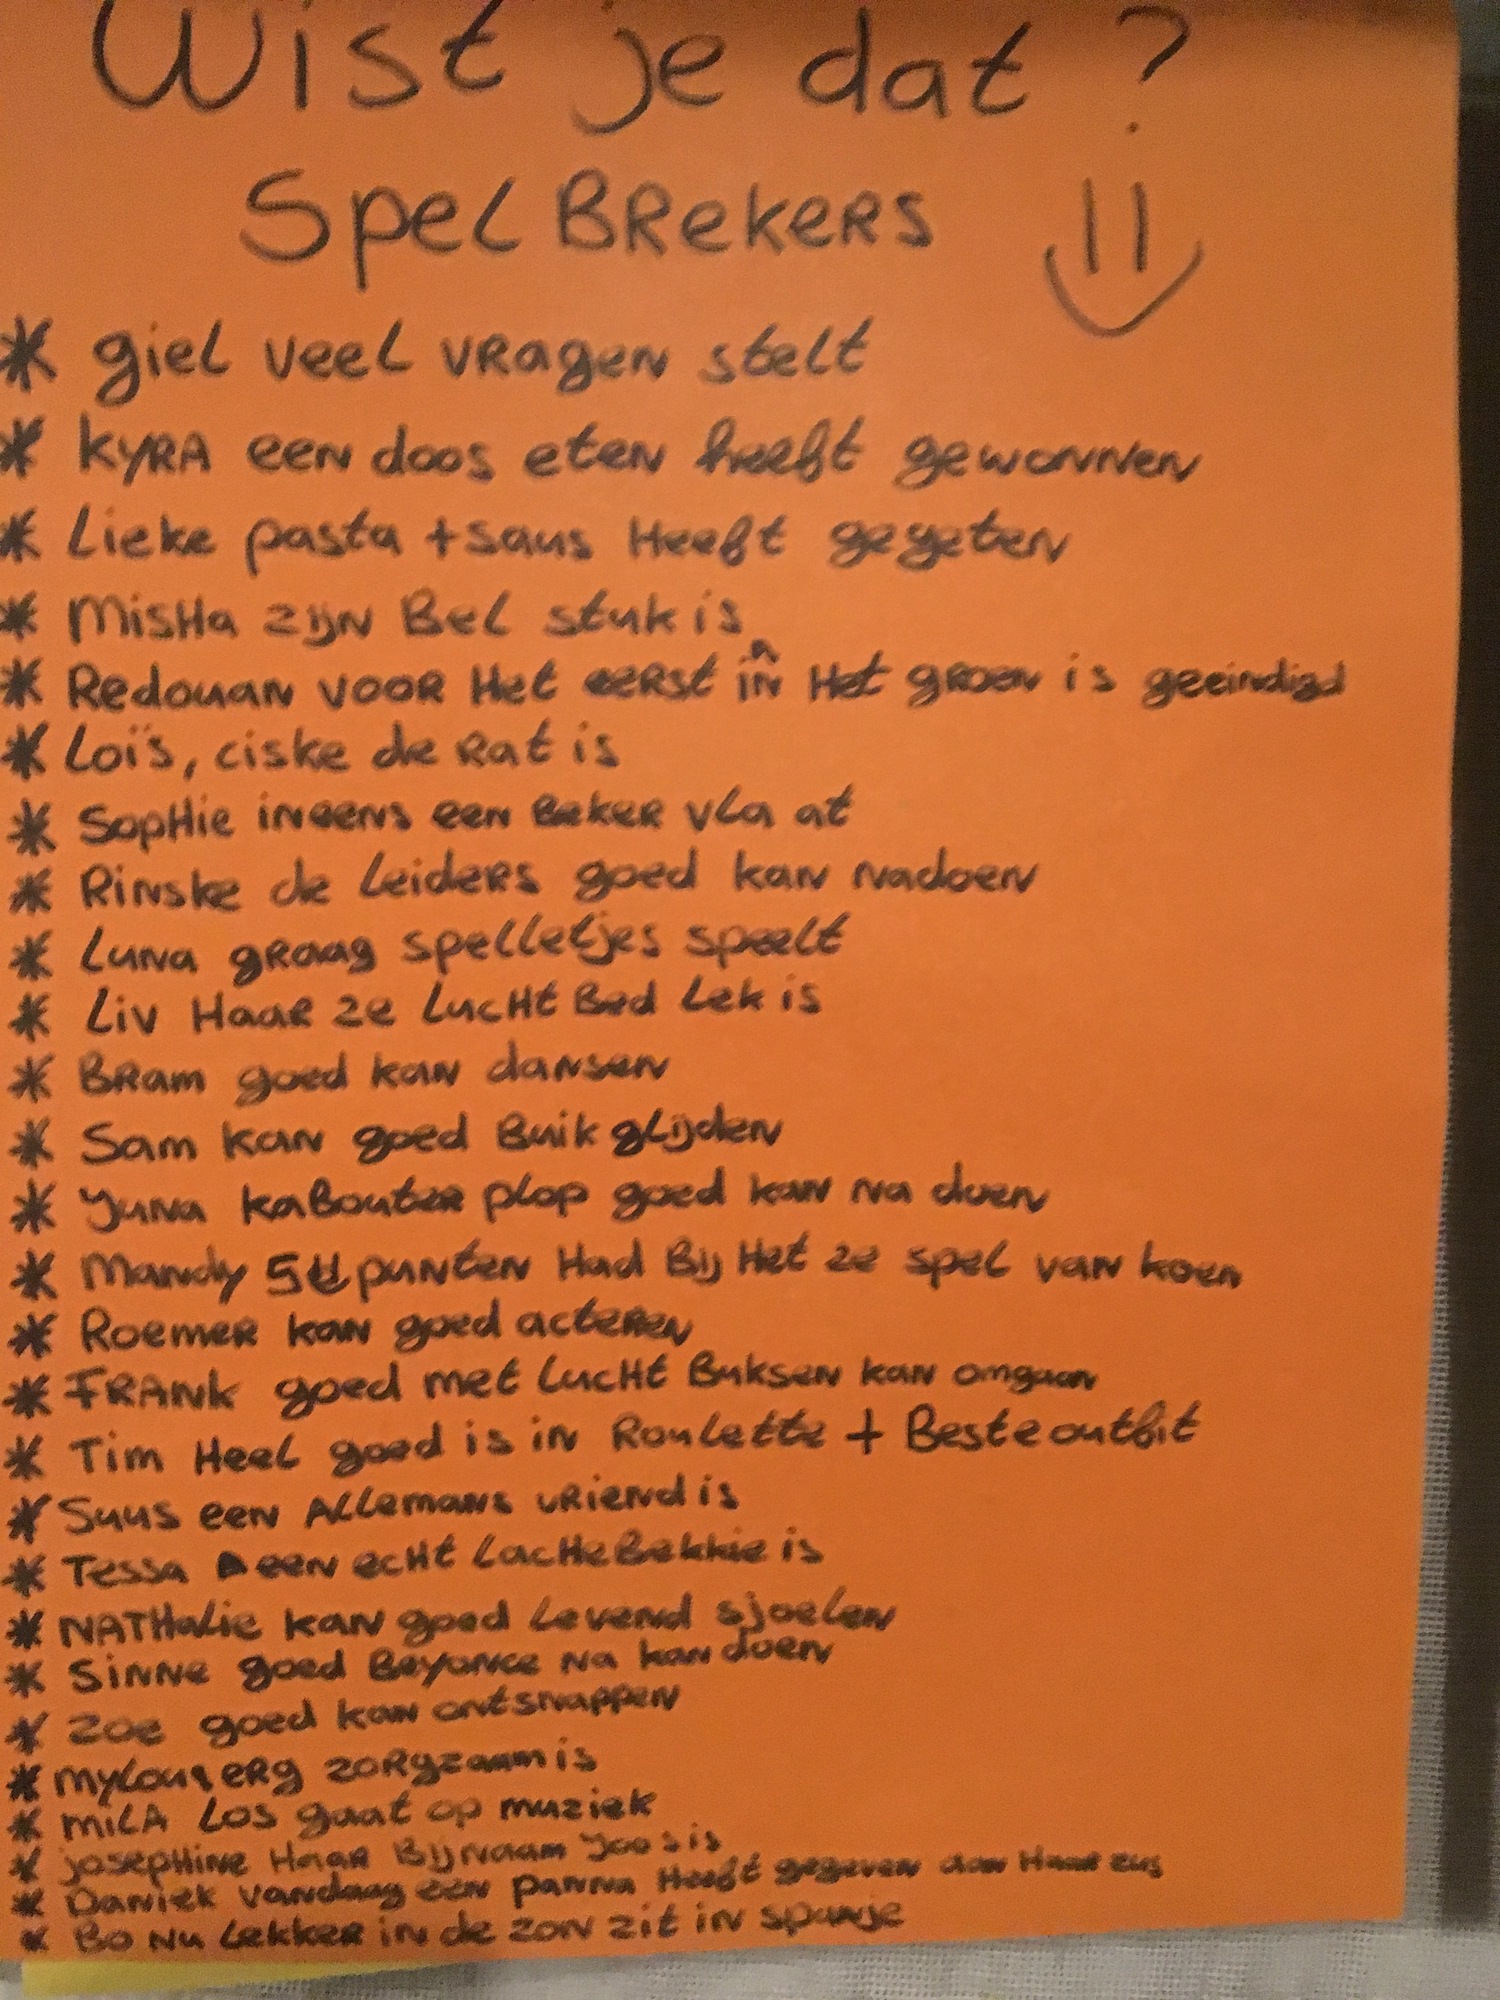 Wist je dat ?
Spel BRekeRS
* giel veel vRagen stelt
* KYRA een doos eten heeft gewonnen
* Lieke pasta + saus Heeft gegeten
* MisHa zijn Bel stuk is
* Redouan vooR Het eeRst in Het gRoen is geeindigd
* Loïs, ciske de Rat is
* SopHie ineens een BekeR vla at
* Rinske de LeideRs goed kan nadoen
* Luna gRaag spelletjes speelt
* Liv HaaR 2e LucHt Bed Lek is
* BRam goed kan dansen
* Sam kan goed Buik glijden
* Yuna kaBouteR plop goed kan na doen
* Mandy punten Had Bij Het 2e spel van koen
* RoemeR kan goed acteRen
* FRANK goed met LucHt Buksen kan omgaan
* Tim Heel goed is in Roulette + Beste outfit
* Suus een Allemans vRiend is
* Tessa een ecHt LacHeBekkie is
* NATHalie kan goed Levend sjoelen
* Sinne goed Beyonce na kan doen
* Zoe goed kan ontsnappen
* Mylou eRg zoRgzaam is
* MiLA Los gaat op muziek
* josepHine HaaR Bijnaam Joos is
* Daniek vandaag een panna Heeft gegeven aan HaaR zus
* Bo nu LekkeR in de zon zit in spanje